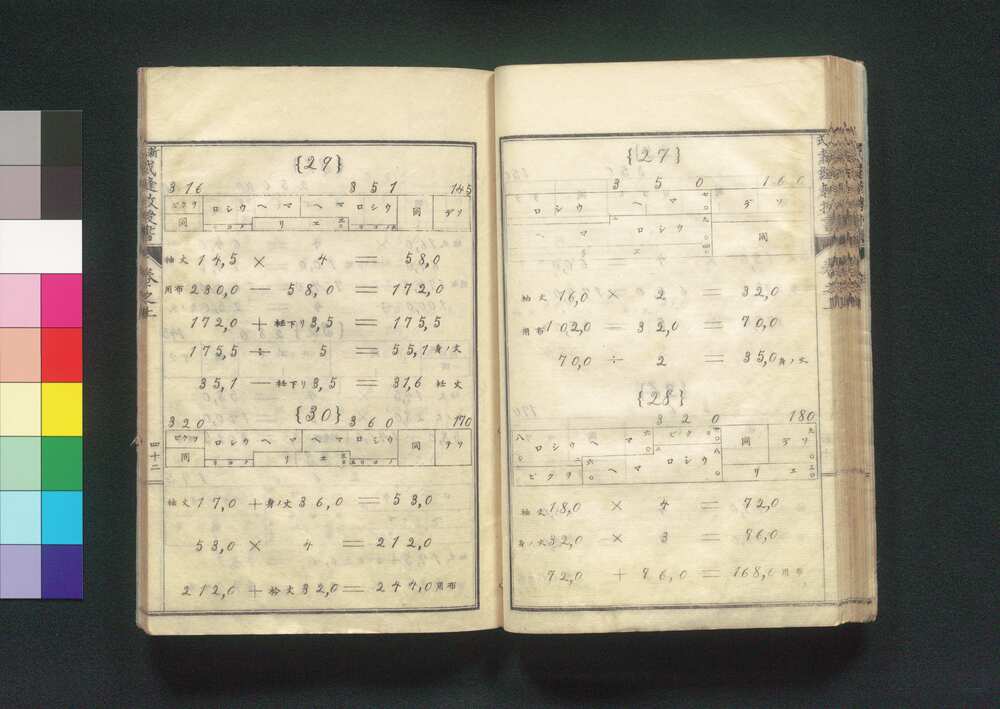 {27}
3 5 0 160
ロシウ ヘマ ソデ
ヘマ ロシウ 同
袖丈 16,0 × 2 = 32,0
用布 102,0 — 32,0 = 70,0
70,0 ÷ 2 = 35,0 身ノ丈
{28}
3 2 0 180
ロシウ ヘマ ビクヲ 同 ソデ
ビクヲ ヘマ ロシウ リエ
袖丈 18,0 × 4 = 72,0
身ノ丈 32,0 × 3 = 96,0
72,0 + 96,0 = 168,0 用布
{29}
316 351 145
ビクヲ ロシウ ヘマ ヘマ ロシウ 同 ソデ
同 リエ
袖丈 14,5 × 4 = 58,0
用布 230,0 — 58,0 = 172,0
172,0 + 衽下リ 3,5 = 175,5
175,5 ÷ 5 = 35,1 身ノ丈
35,1 — 衽下リ 3,5 = 31,6 衽丈
{30}
320 360 170
ビクヲ ロシウ ヘマ ヘマ ロシウ 同 ソデ
同 リエ
袖丈 17,0 + 身ノ丈 36,0 = 53,0
53,0 × 4 = 212,0
212,0 + 衽丈 32,0 = 244,0 用布
卷之上
四十二